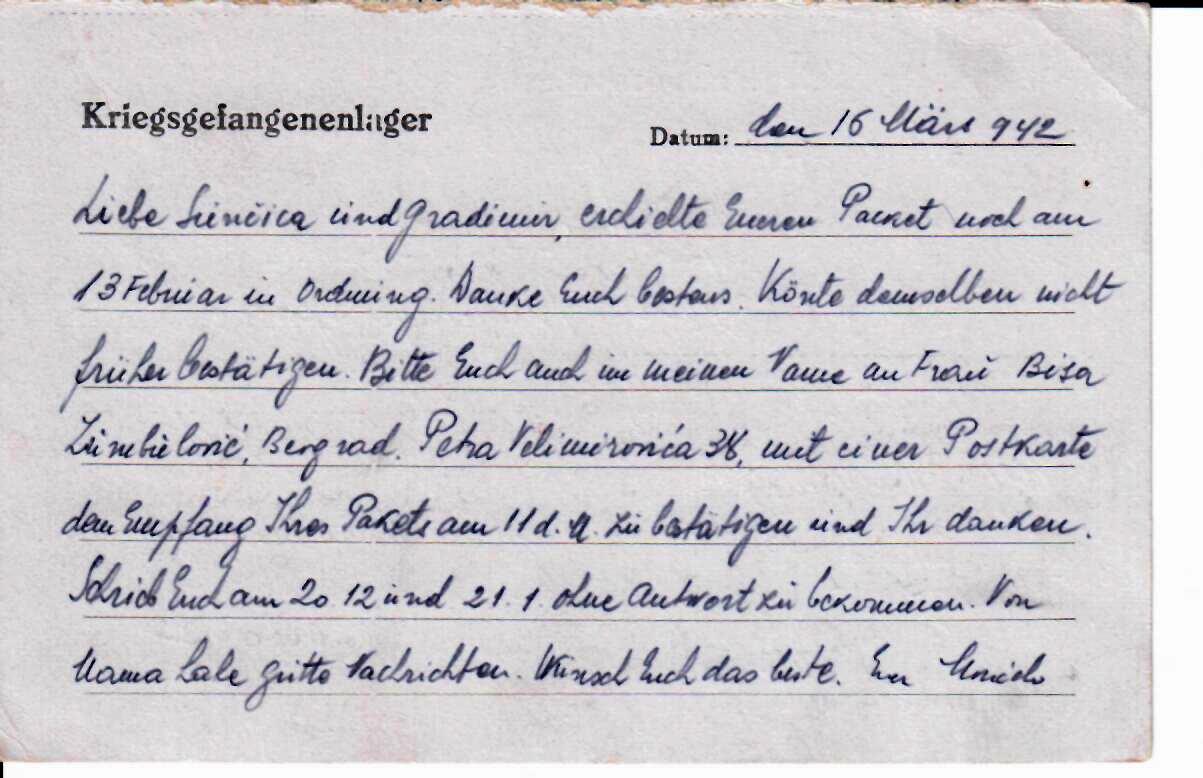 Kriegsgefangenenlager
Datum: den 16 März 942
Liebe Sunčica und Gradimir, erhielte Eueren Packet noch am
13 Februar in Ordnung. Danke Euch bestens. Könte demselben nicht
früher bestätigen. Bitte Euch auch im meinen Name an Frau Bisa
Beograd. Petra Velimirovića 38, mit einer Postkarte
den Empfang Ihres Pakets am 11 d. M. zu bestätigen und Ihr danken.
Schrieb Euch am 20.12 und 21.1. ohne Antwort zu bekommen. Von
Mama Lale gutte Nachrichten. Wünsch Euch das beste. Euer